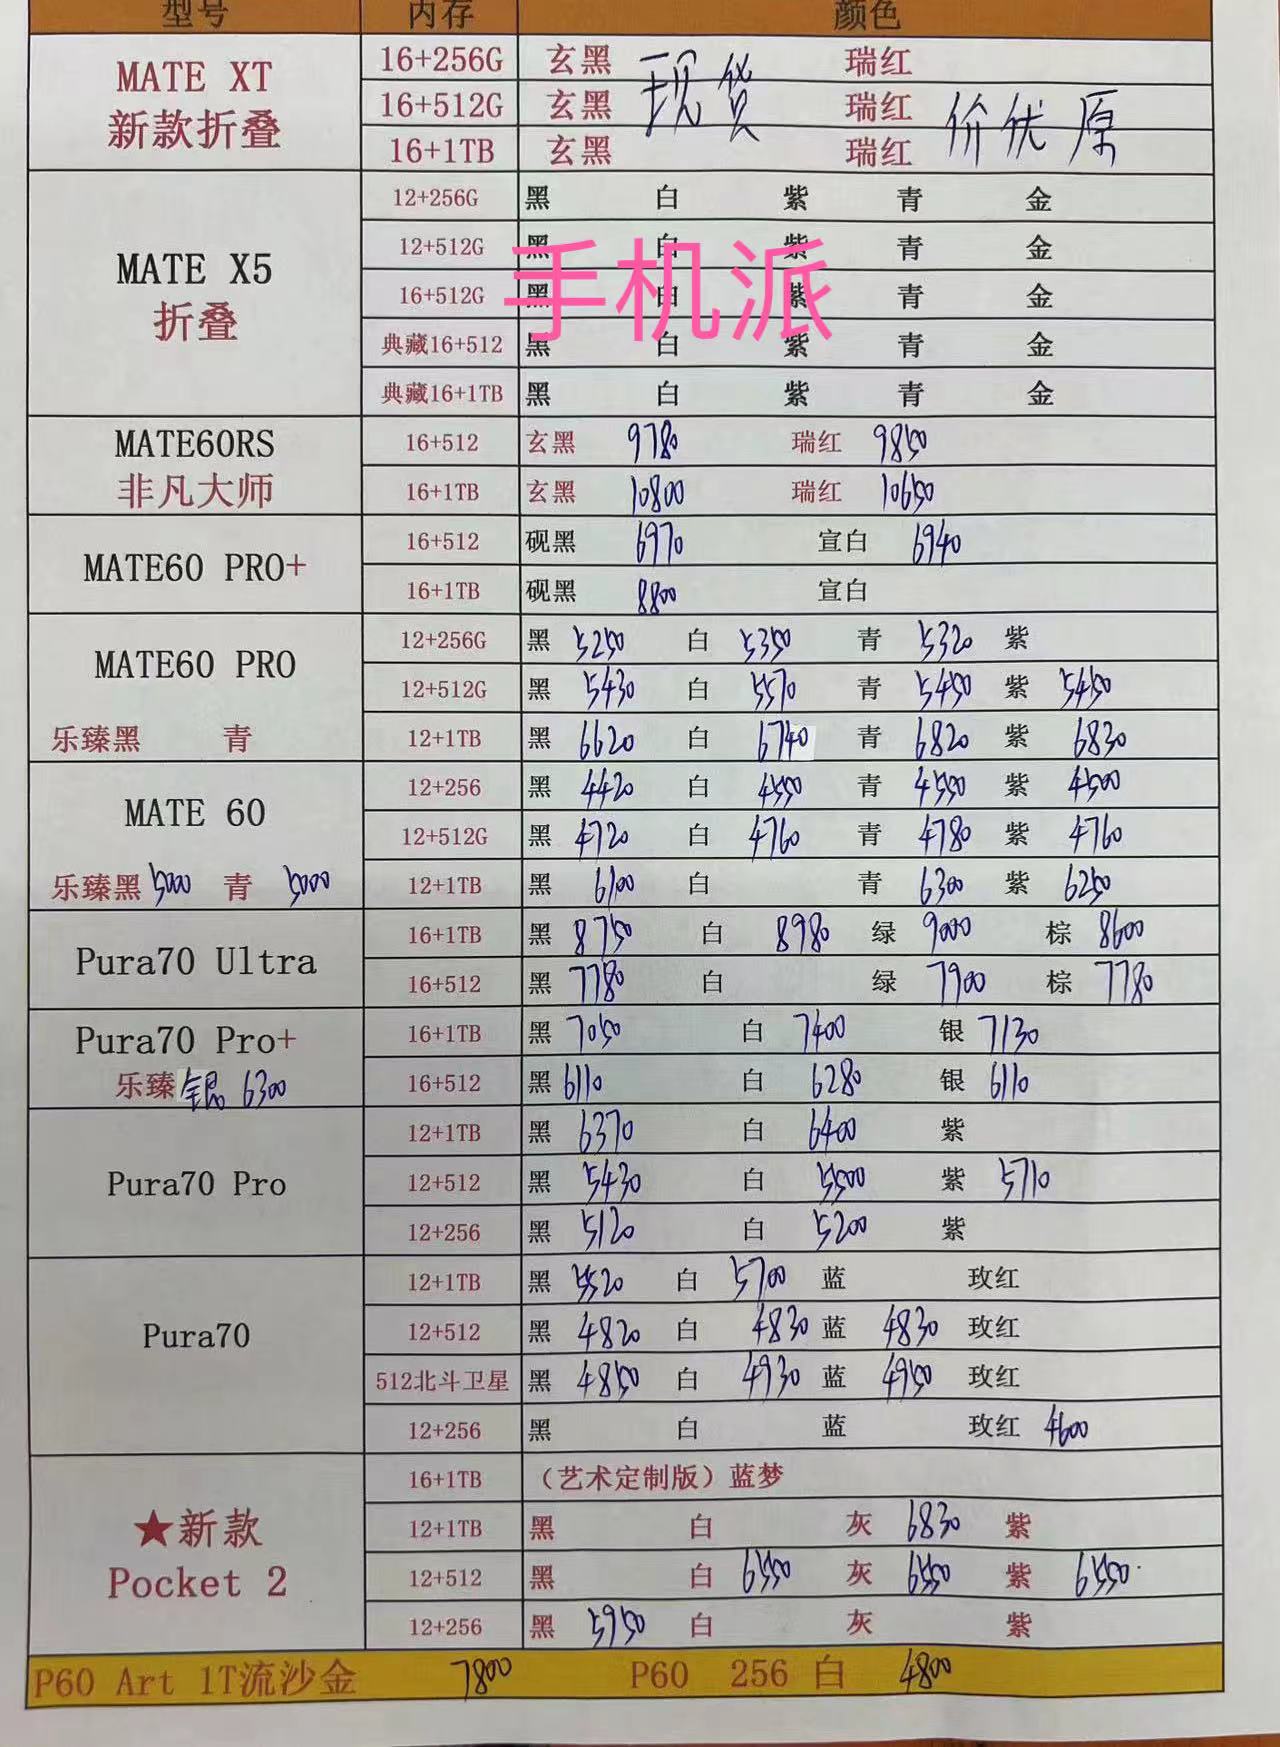 型号 内存 颜色
MATE XT 新款折叠 16+256G 玄黑 瑞红
16+512G 玄黑 现货 瑞红 价优原
16+1TB 玄黑 瑞红
MATE X5 折叠 12+256G 黑 白 紫 青 金
12+512G 黑 白 紫 青 金
手机派
16+512G 黑 白 紫 青 金
典藏16+512 黑 白 紫 青 金
典藏16+1TB 黑 白 紫 青 金
MATE60RS 16+512 玄黑 9780 瑞红 9850
非凡大师 16+1TB 玄黑 10800 瑞红 10650
MATE60 PRO+ 16+512 砚黑 6970 宣白 6940
16+1TB 砚黑 8800 宣白
MATE60 PRO 12+256G 黑 5250 白 5350 青 5320 紫
12+512G 黑 5430 白 5570 青 5450 紫 5450
乐臻黑 青 12+1TB 黑 6620 白 6740 青 6820 紫 6830
MATE 60 12+256 黑 4420 白 4550 青 4550 紫 4500
12+512G 黑 4720 白 4760 青 4780 紫 4760
乐臻黑 5000 青 5000 12+1TB 黑 6100 白 青 6300 紫 6250
Pura70 Ultra 16+1TB 黑 8750 白 8980 绿 9000 棕 8600
16+512 黑 7780 白 绿 7900 棕 7780
Pura70 Pro+ 16+1TB 黑 7050 白 7400 银 7130
乐臻 银 6300 16+512 黑 6110 白 6280 银 6110
Pura70 Pro 12+1TB 黑 6370 白 6400 紫
12+512 黑 5430 白 5500 紫 5710
12+256 黑 5120 白 5200 紫
Pura70 12+1TB 黑 5520 白 5700 蓝 玫红
12+512 黑 4820 白 4830 蓝 4830 玫红
512北斗卫星 黑 4850 白 4930 蓝 4950 玫红
12+256 黑 白 蓝 玫红 4600
★新款 Pocket 2 16+1TB （艺术定制版）蓝梦
12+1TB 黑 白 灰 6830 紫
12+512 黑 白 6550 灰 6550 紫 6550
12+256 黑 5950 白 灰 紫
P60 Art 1T流沙金 7800 P60 256 白 4800